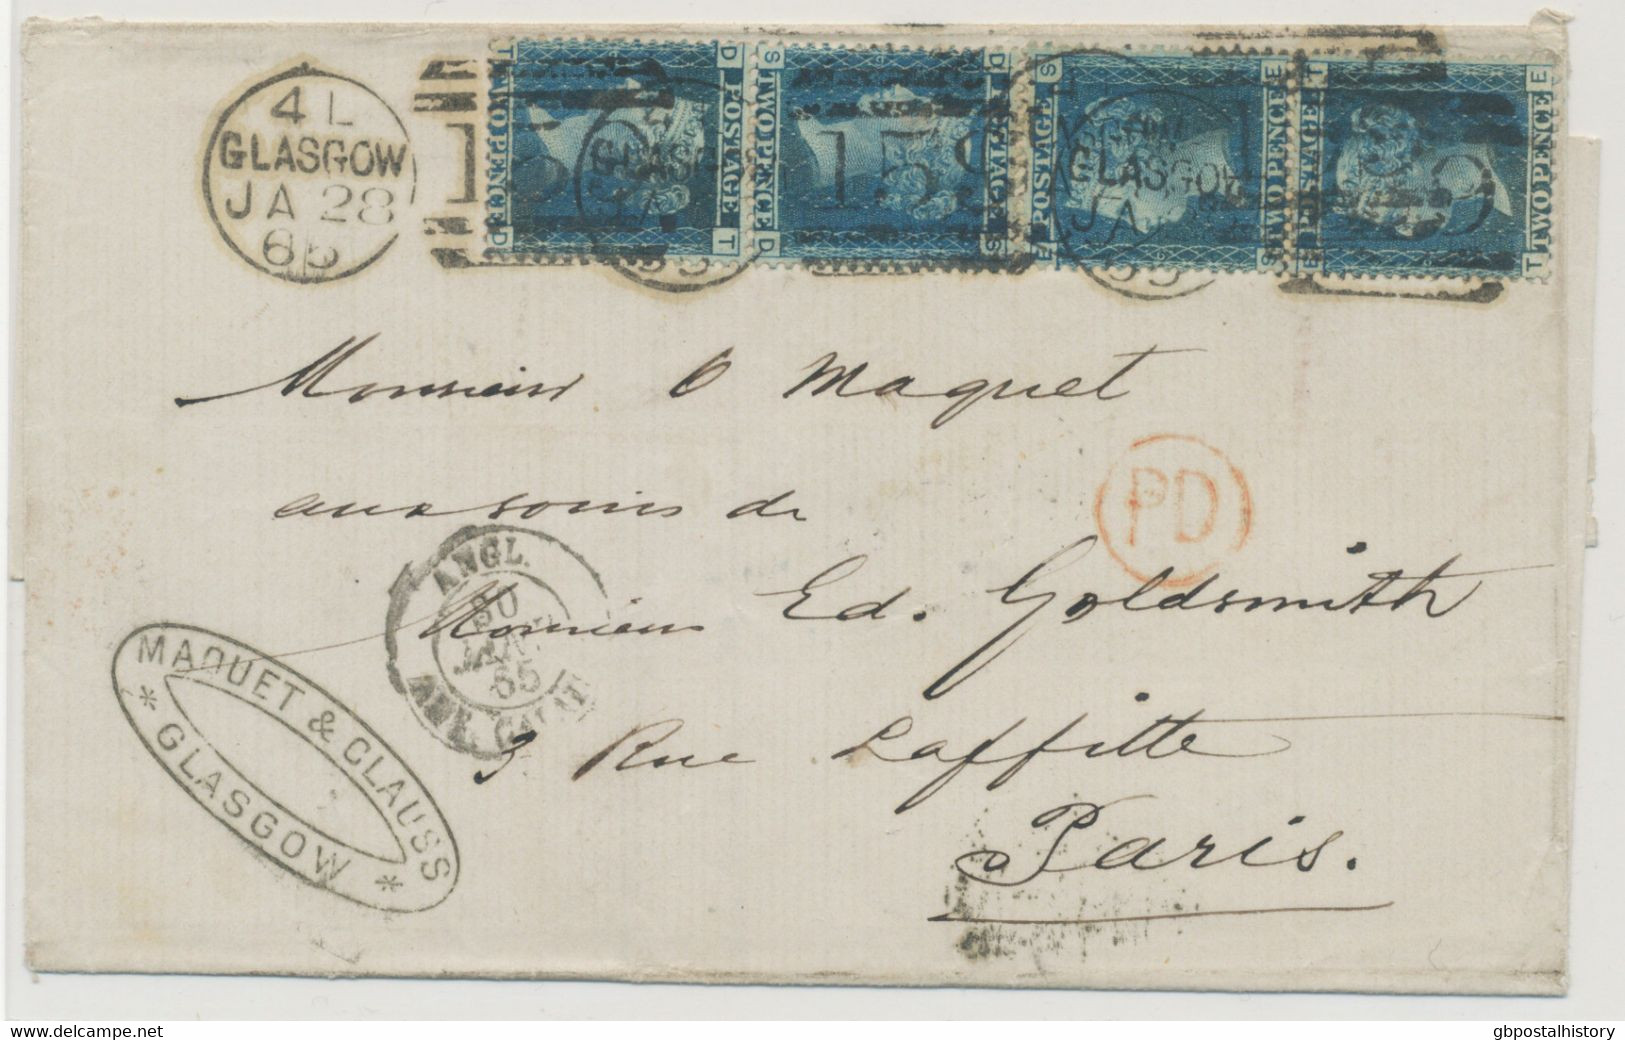 4 L
GLASGOW
JA 28
65
159
T D
TWO PENCE
POSTAGE
D T
S D
TWO PENCE
POSTAGE
D S
S E
POSTAGE
TWO PENCE
E S
T E
POSTAGE
TWO PENCE
E T
GLASGOW
JA
GLASGOW
JA
Monsieur O Maquet
aux soins de
PD
Monsieur Ed. Goldsmith
3 Rue Laffitte
Paris.
ANGL.
30
JANV
65
AMB. CALAIS
MAQUET & CLAUSS
* GLASGOW *
gbpostalhistory